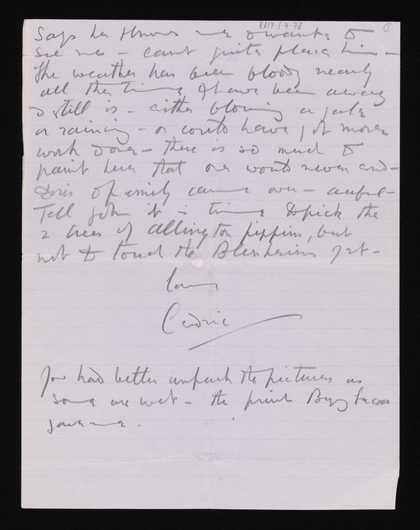 Says he
me & wants to
see me – can't quite place him –
The weather has been bloody nearly
all the time I have been away
& still is – either blowing a gale
or raining – or could have got more
work done – there is so much to
paint here that one would never end –
Doris & family came over – awful –
Tell John it is time to pick the
2 trees of Allington pippins, but
not to touch the Blenheims yet –
love
Cedric
You had better unpack the pictures as
some are wet – the print
gave me.